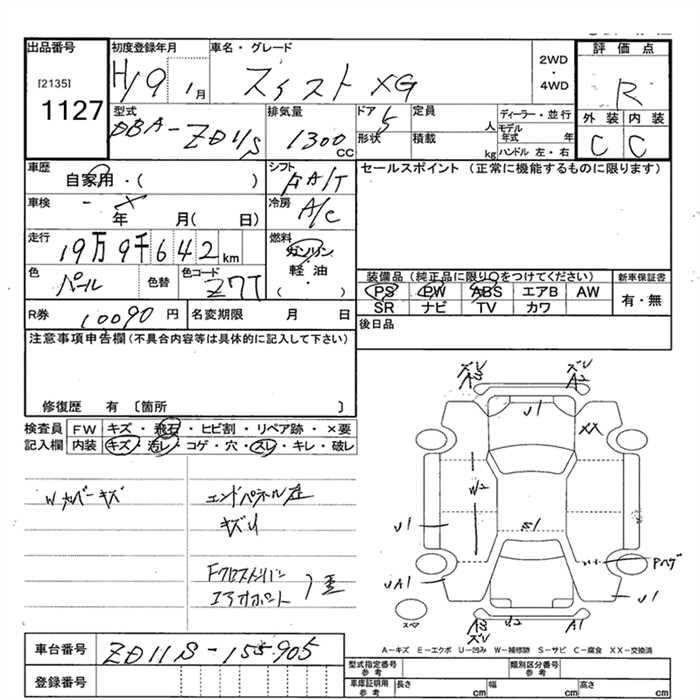 出品番号
[2135]
1127
初度登録年月
H19 1月
車名・グレード
スイスト XG
2WD
・
4WD
評価点
R
外装 内装
C C
型式
DBA-ZD11S
排気量
1300 CC
ドア 5
形状
定員 人
積載 kg
ディーラー・並行
モデル年式 年
ハンドル 左・右
車歴
自家用・( )
シフト
FA/T
車検
年 月( 日)
冷房
A/C
走行
19万9千642km
燃料
ガソリン
・
軽油
・
( )
色
パール
色替
色コード
Z7T
R券
10090 円
名変期限 月 日
セールスポイント (正常に機能するものに限ります)
装備品(純正品に限り○をつけてください)
PS PW ABS エアB AW
SR ナビ TV カワ
新車保証書
有・無
後日品
注意事項申告欄(不具合内容等は具体的に記入して下さい)
修復歴 有 〔箇所 〕
検査員
記入欄
FW キズ・飛石・ヒビ割・リペア跡・×要
内装 キズ・汚レ・コゲ・穴・スレ・キレ・破レ
Wカバーキズ
エンドパネル歪
キズU
Fクロスメンバー
ズレ
A3
ズレ
A2
U1
XX
W2
S1
U1
UA1
Pハゲ
U1
スペア
A3
ズレ
W2
A1
A-キズ E-エクボ U-凹み W-補修跡 S-サビ C-腐食 XX-交換済
車台番号
ZD11S-155905
登録番号
型式指定番号
参考
類別区分番号
参考
車庫証明用
参考
長さ cm
幅 cm
高さ cm